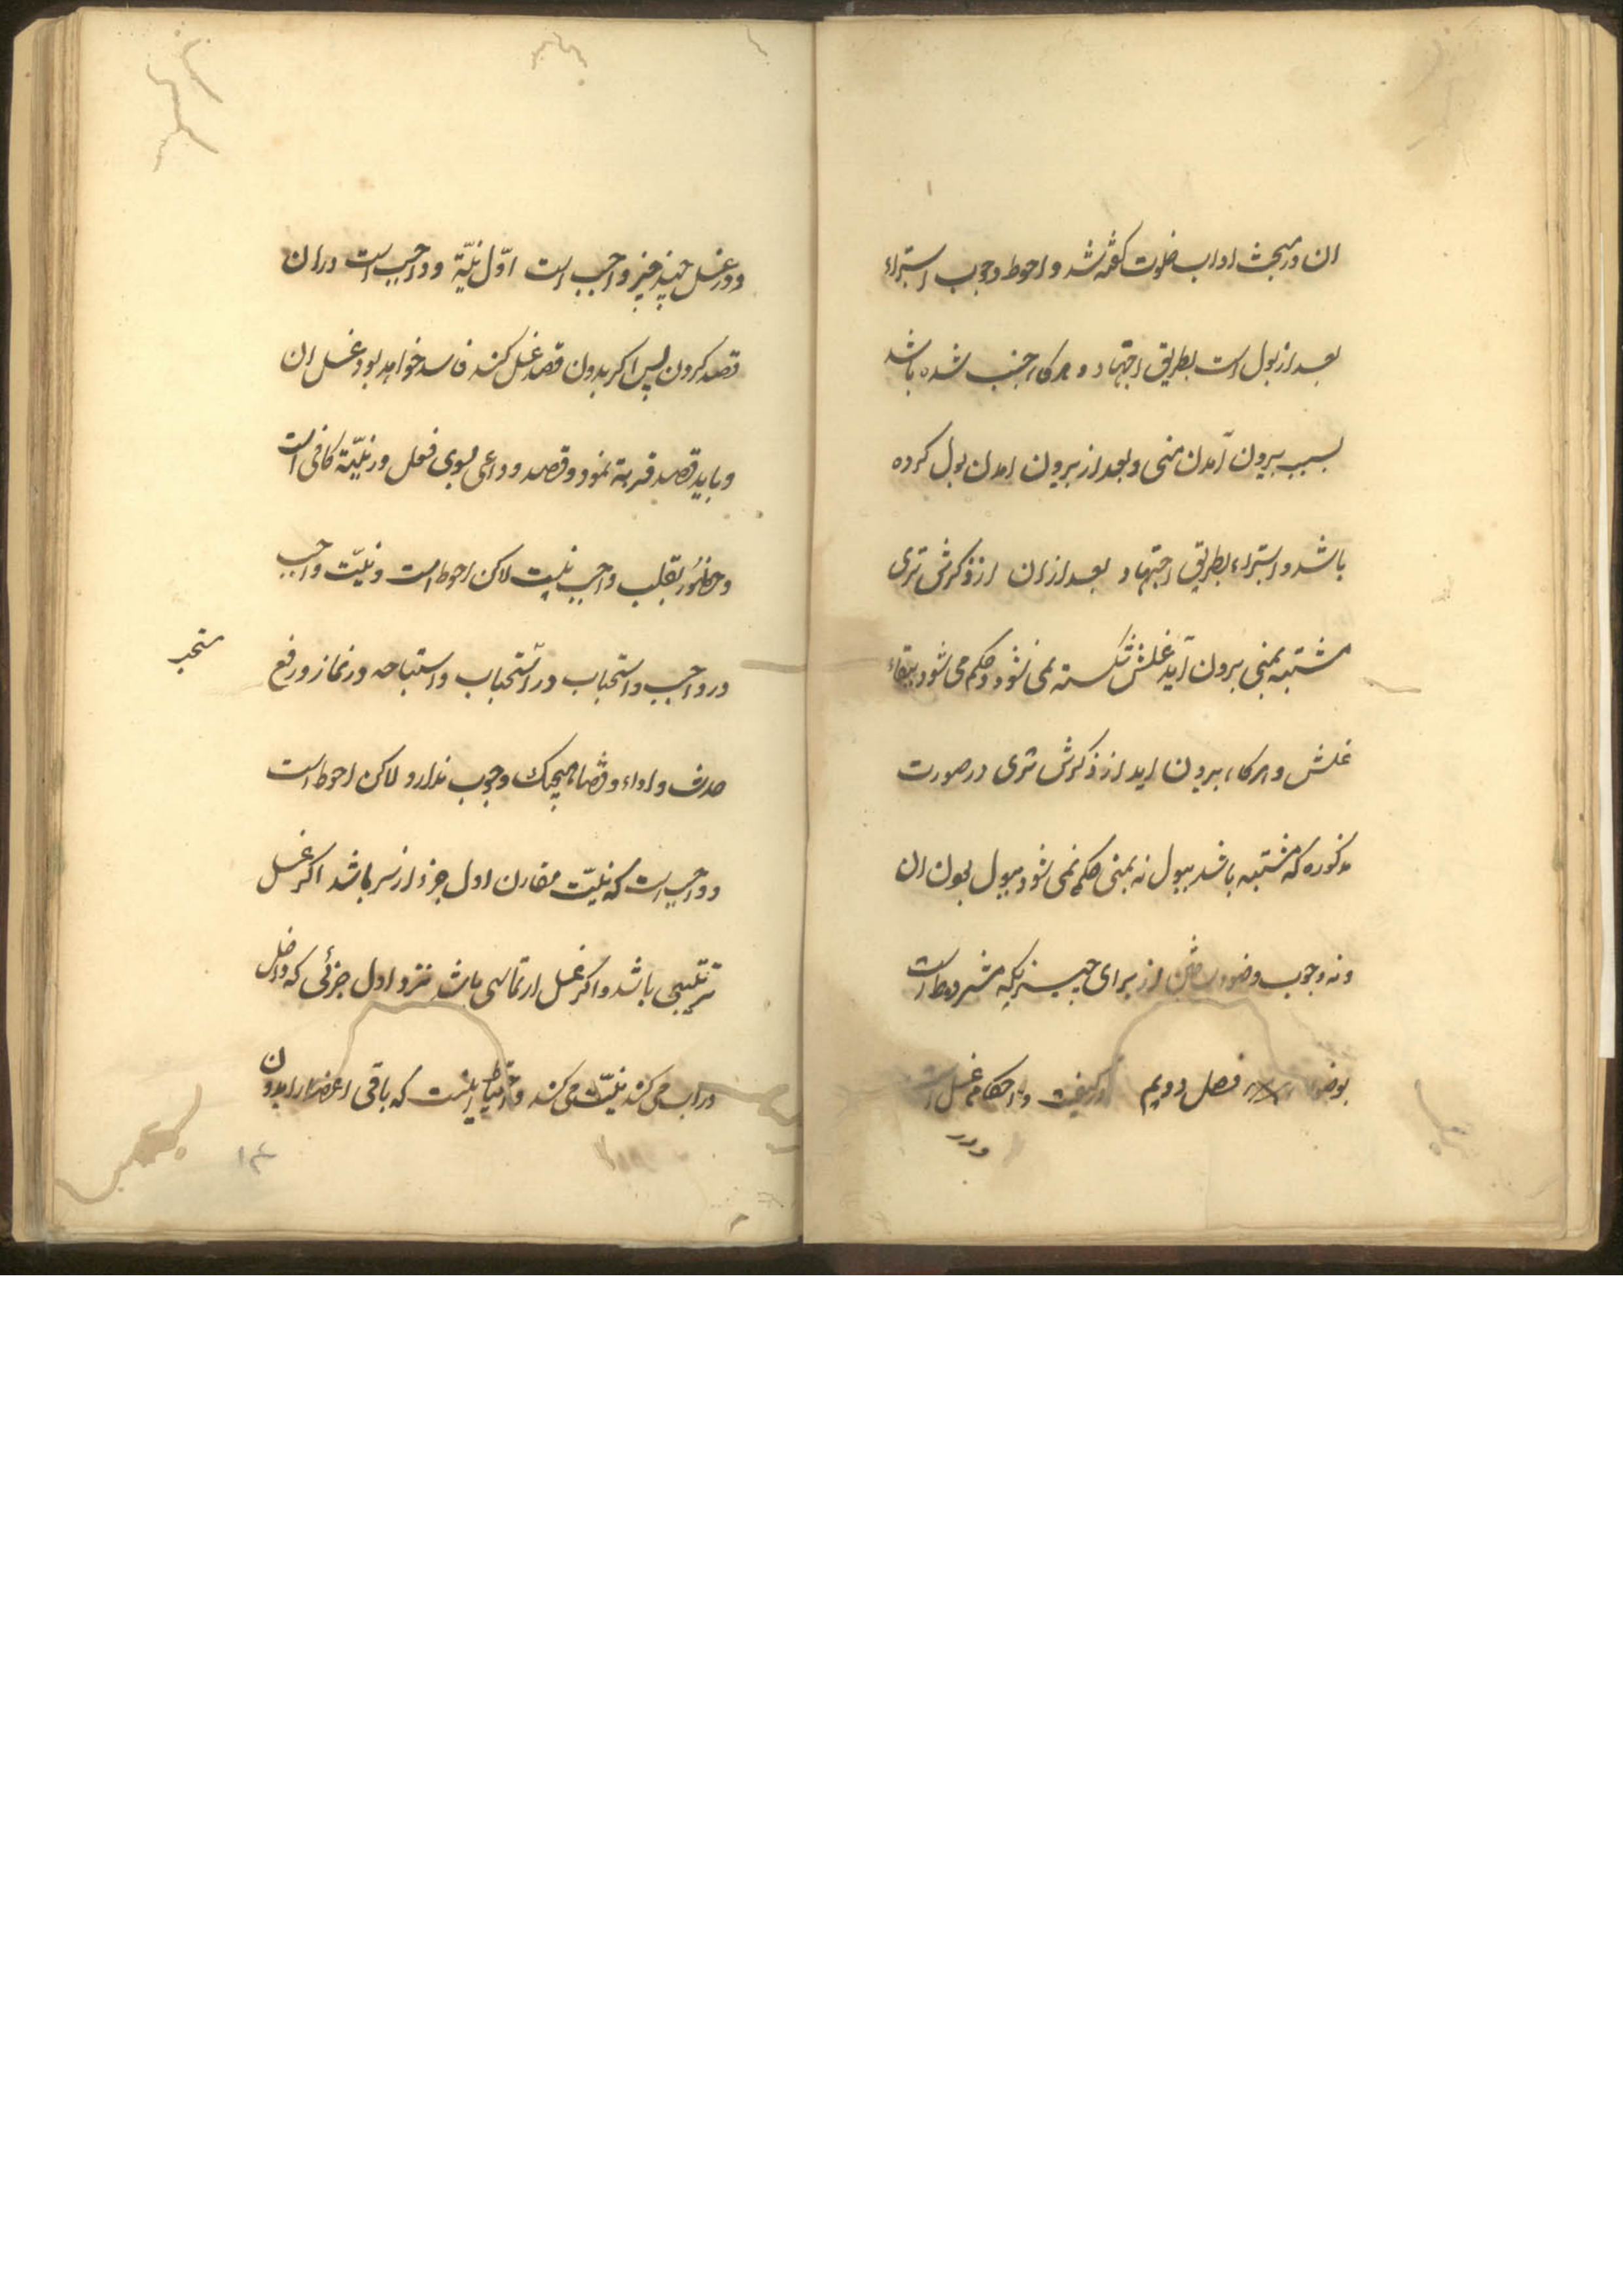 ان در مبحث اداب خلوت گفته شد و احوط وجوب استبراء
بعد از بول است بطریق اجتهاد و هرگاه جنب شده باشد
بسبب بیرون آمدن منی و بعد از بیرون امدن بول کرده
باشد و استبراء بطریق اجتهاد بعد ازان از ذکرش تری
مشتبه بمنی بیرون آید غسلش شکسته نمی شود و حکم می شود ببقاء
غسلش و هرگاه بیرون اید از ذکرش تری در صورت
مذکوره که مشتبه باشد ببول نه بمنی حکم نمی شود ببول بودن ان
و نه وجوب وضو ساختن از برای چیزیکه مشروط است
بوضو فصل دویم در کیفیت و احکام غسل است
و در
و در غسل چند چیز واجب است اوّل نیّة و واجب است در ان
قصد کردن پس اکر بدون قصد غسل کند فاسد خواهد بود غسل ان
و باید قصد قربة نمود و قصد و داعی بسوی فعل در نیّة کافی است
و خطور بقلب واجب نیست لاکن احوط است و نیّت واجب
در واجب و استحباب در استحباب و استباحه در نماز و رفع
مستحب
حدث و اداء و قضا هیچیک وجوب ندارد لاکن احوط است
و واجب است که نیّت مقارن اول جزء از سر باشد اکر غسل
ترتیبی باشد و اکر غسل ارتماسی باشد نزد اول جزئی که داخل
در اب می کند نیّت می کند و احتیاط اینست که باقی اعضا را بدون
۱۳